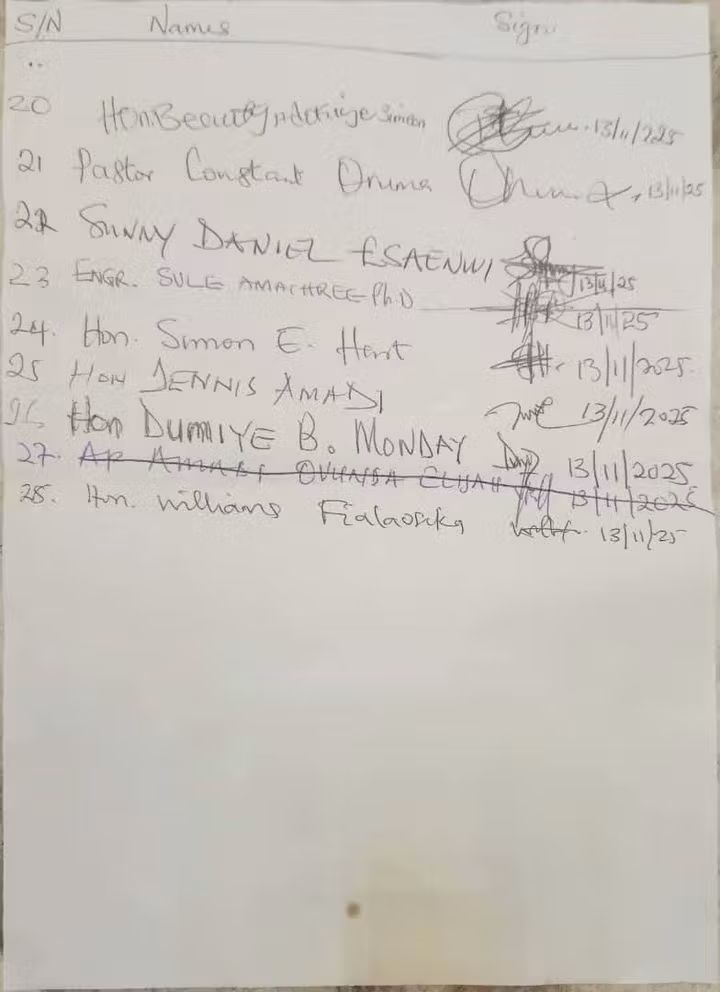 S/N Names Sign
20 Hon. Beauty Simeon 13/11/225
21 Pastor Constant Onuma 13/11/25
22 SUNNY DANIEL ESAENWI 13/11/25
23 ENGR. SULE AMACHREE Ph.D 13/11/25
24. Hon. Simon E. Hart 13/11/2025
25 HON DENNIS AMADI 13/11/2025
26. Hon DUMIYE B. MONDAY 13/11/2025
27. AP AMADI OVUNDA ELIJAH 13/11/2025
28. Hon. Williams Fialaoseka 13/11/25